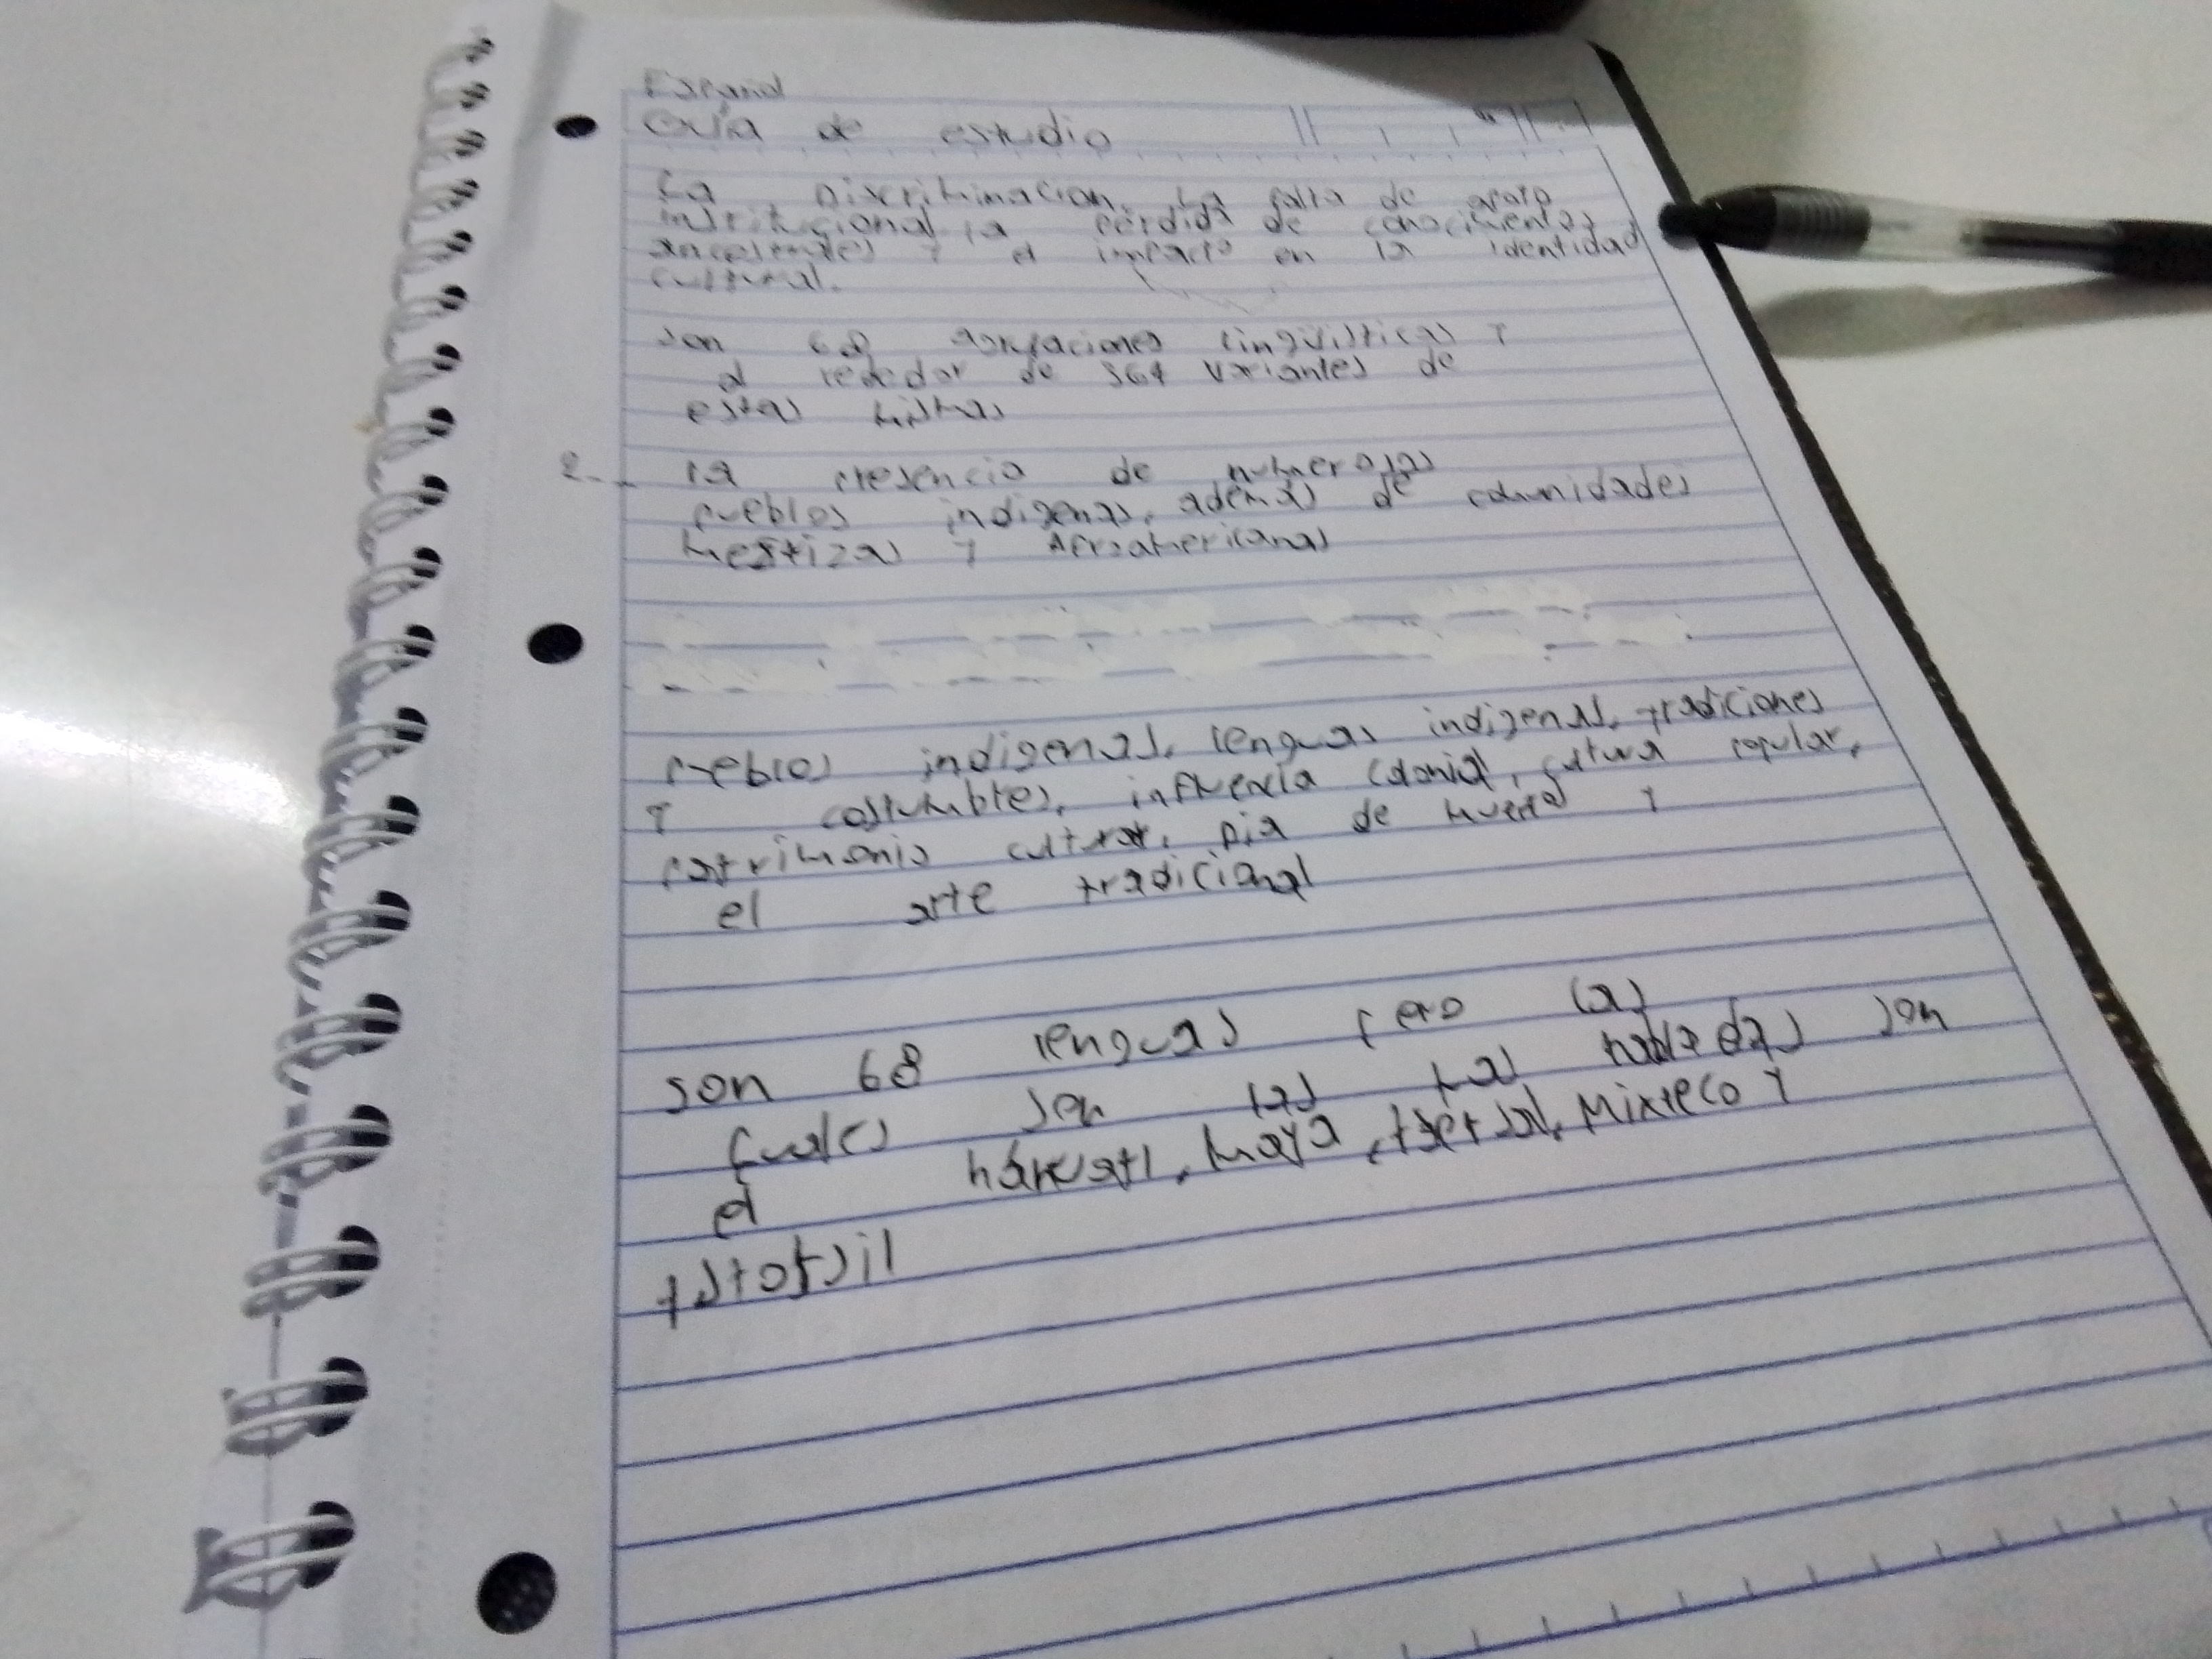 Español
Guía de estudio
La Discriminacion, La falta de apoyo
institucional la perdida de conocimientos
ancestrales y el impacto en la identidad
cultural.
son 68 agrupaciones lingüísticas y
al rededor de 364 variantes de
estas mismas
2- la presencia de numerosos
pueblos indigenas, ademas de comunidades
mestizas y Afroamericanas
pueblos indigenas, lenguas indigenas, tradiciones
y costumbres, influencia colonial, cultura popular,
patrimonio cultural, Dia de muertos y
el arte tradicional
son 68 lenguas pero las
cuales son las mas habladas son
el náhuatl, maya, Mixteco y